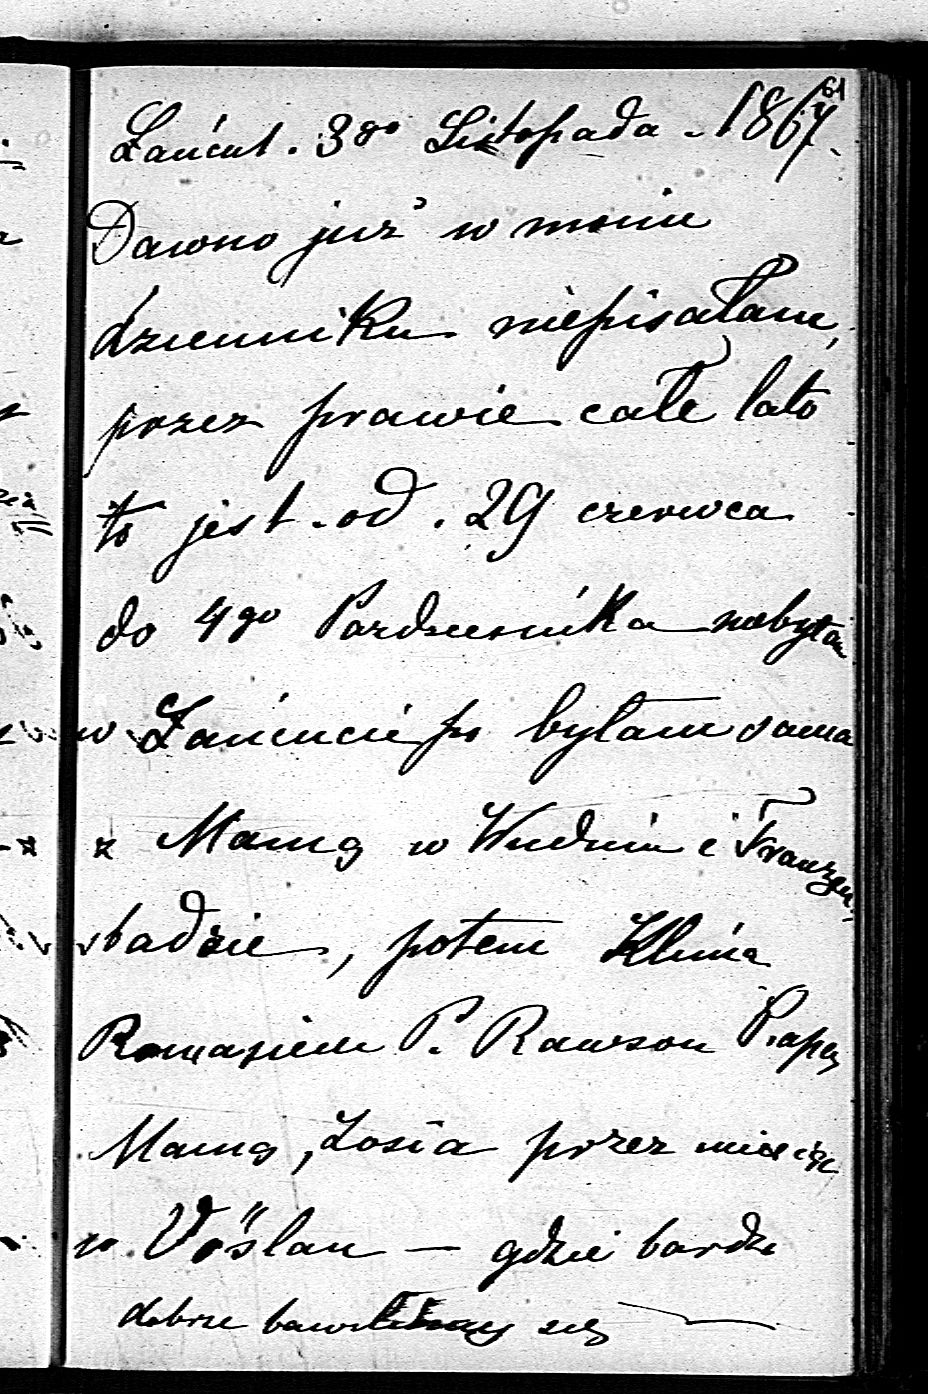 61
Łańcut. 3go Listopada - 1867.
Dawno już w moim
dzienniku niepisałam,
przez prawie całe lato
to jest od. 29 czerwca
do 4go Pazdziernika niebyłam
w Łańcucie bo byłam sama
z Mamą w Wiedniu i Franzens
badzie, potem Klimą
Romaziem P. Rawson Papą
Mamą, Zosia przez miesiąc
w Vöslau — gdzie bardzo
dobrze bawiliśmy się —